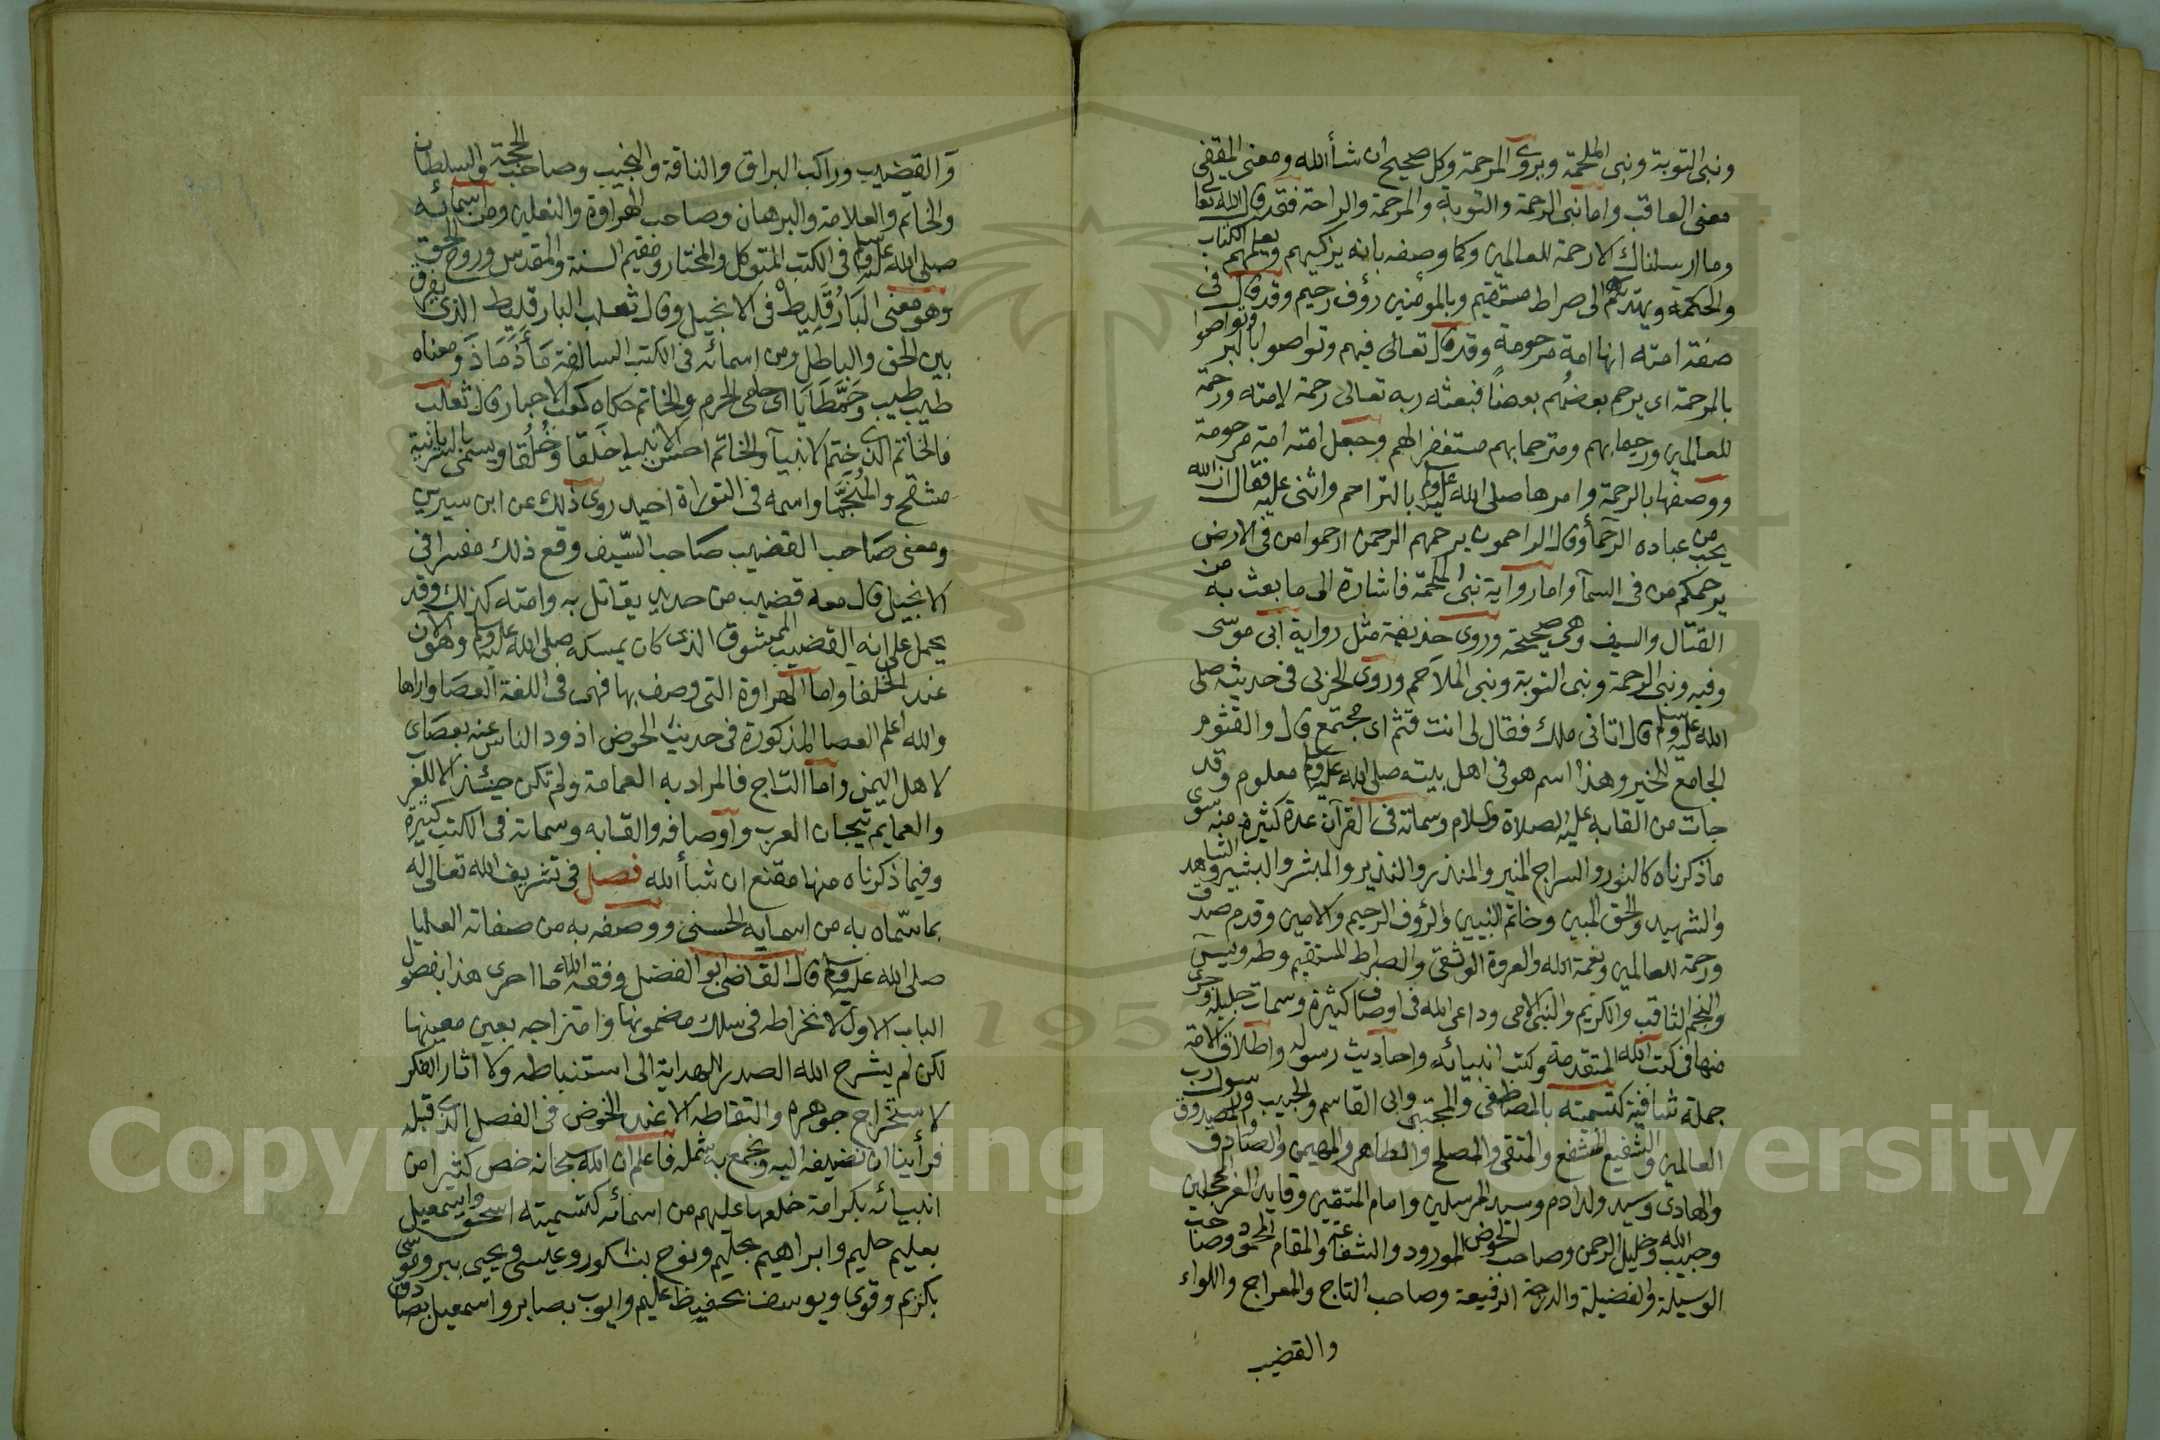 ونبى التوبة ونبى الملحمة ويروى المرحمة وكل صحيح ان شأ الله ومعنى المقفى
معنى العاقب واما نبى الرحمة والتوبة والمرحمة والراحة فقد قال الله تعالى
وما ارسلناك الا رحمة للعالمين وكما وصفه بانه يزكيهم ويعلمهم الكتاب
والحكمة ويهديهم الى صراط مستقيم وبالمؤمنين رؤف رحيم وقد قال فى
صفة امته انها امة مرحومة وقد قال تعالى فيهم وتواصوا بالبر وتواصوا
بالمرحمة اى يرحم بعضهم بعضا فبعثه ربه تعالى رحمة لامته ورحمة
للعالمين ورحيما بهم ومترحما بهم مستغفرا لهم وجعل امته امة مرحومة
ووصفها بالرحمة وامرها صلى الله عليه وسلم بالتراحم واثنى عليه فقال ان الله
يحب من عباده الرحمأ وقال الراحمون يرحمهم الرحمن ارحموا من فى الارض
يرحمكم من فى السمآ واما رواية نبى الملحمة فاشارة الى ما بعث به من
القتال والسيف وهى صحيحة وروى حذيفة مثل رواية ابى موسى
وفيه ونبى الرحمة ونبى التوبة ونبى الملاحم وروى الحربى فى حديثه صلى
الله عليه وسلم قال اتانى ملك فقال لى انت قثم اى مجتمع قال والقثوم
الجامع للخير وهذا اسم هو فى اهل بيته صلى الله عليه وسلم معلوم وقد
جات من القابه عليه الصلاة والسلام وسماته فى القرآن عدة كثيرة منه سوى
ما ذكرناه كالنور والسراج المنير والمنذر والنذير والمبشر والبشير والشاهد
والشهيد والحق المبين وخاتم النبيين والرؤف الرحيم والامين وقدم صدق
ورحمة للعالمين ونعمة الله والعروة الوثقى والصراط المستقيم وطه ويس
والنجم الثاقب والكريم والنبى الامى وداعى الله فى اوصاف كثيرة وسمات جليلة وجرى
منها فى كتب الله المتقدمة وكتب انبيائه واحاديث رسوله واطلاق الامة
جملة شافية كتسميته بالمصطفى والمجتبى وابى القاسم والحبيب ورسول رب
العالمين والشفيع المشفع والمتقى والمصلح والطاهر والمهيمن والصادق والمصدوق
والهادى وسيد ولد ادم وسيد المرسلين وامام المتقين وقايد الغر المحجلين
وحبيب الله وخليل الرحمن وصاحب الحوض المورود والشفاعة والمقام المحمود وصاحب
الوسيلة والفضيلة والدرجة الرفيعة وصاحب التاج والمعراج واللواء
والقضيب
والقضيب وراكب البراق والناقة والنجيب وصاحب الحجة والسلطان
والخاتم والعلامة والبرهان وصاحب الهراوة والنعلين ومن اسمائه
صلى الله عليه وسلم فى الكتب المتوكل والمختار ومقيم السنة والمقدس وروح الحق
وهو معنى البارقليط فى الانجيل وقال ثعلب البارقليط الذى يفرق
بين الحق والباطل ومن اسمائه فى الكتب السالفة مأذ ماذ ومعناه
طيب طيب وحمطايا اى حامى الحرم والخاتم حكاه كعب الاحبار قال ثعلب
فالخاتم الذى ختم الانبيآ والخاتم احسن الانبيا خلقا وخلقا ويسمى بالسريانية
مشقح والمنحمنا واسمه فى التوراة احيد روى ذلك عن ابن سيرين
ومعنى صاحب القضيب صاحب السيف وقع ذلك مفسرا فى
الانجيل قال معه قضيب من حديد يقاتل به وامته كذلك وقد
يحمل على انه القضيب الممشوق الذى كان يمسكه صلى الله عليه وسلم وهو الان
عند الخلفا واما الهراوة التى وصف بها فهى فى اللغة العصا واراها
والله اعلم العصا المذكورة فى حديث الحوض اذود الناس عنه بعصاى
لاهل اليمن واما التاج فالمراد به العمامة ولم تكن حينئذ الا للعرب
والعمايم تيجان العرب واوصافه والقابه وسماته فى الكتب كثيرة
وفيما ذكرناه منها مقنع ان شأ الله فصل فى تشريف الله تعالى له
بما سماه به من اسمايه الحسنى ووصفه به من صفاته العليا
صلى الله عليه وسلم قال القاضى ابو الفضل وفقه الله ما احرى هذا بفصول
الباب الاول لانخراطه فى سلك مضمونها وامتزاجه بعين معينها
لكن لم يشرح الله الصدر للهداية الى استنباطه ولا اثار الفكر
لاستخراج جوهره والتقاطه الا عند الخوض فى الفصل الذى قبله
فرأينا ان نضيفه اليه ونجمع به شمله فاعلم ان الله سبحانه خص كثيرا من
انبيائه بكرامة خلعها عليهم من اسمائه كتسميته اسحق واسمعيل
بعليم حليم وابراهيم بحليم ونوح بشكور وعيسى ويحيى ببر وموسى
بكريم وقوى ويوسف بحفيظ عليم وايوب بصابر واسمعيل بصادق